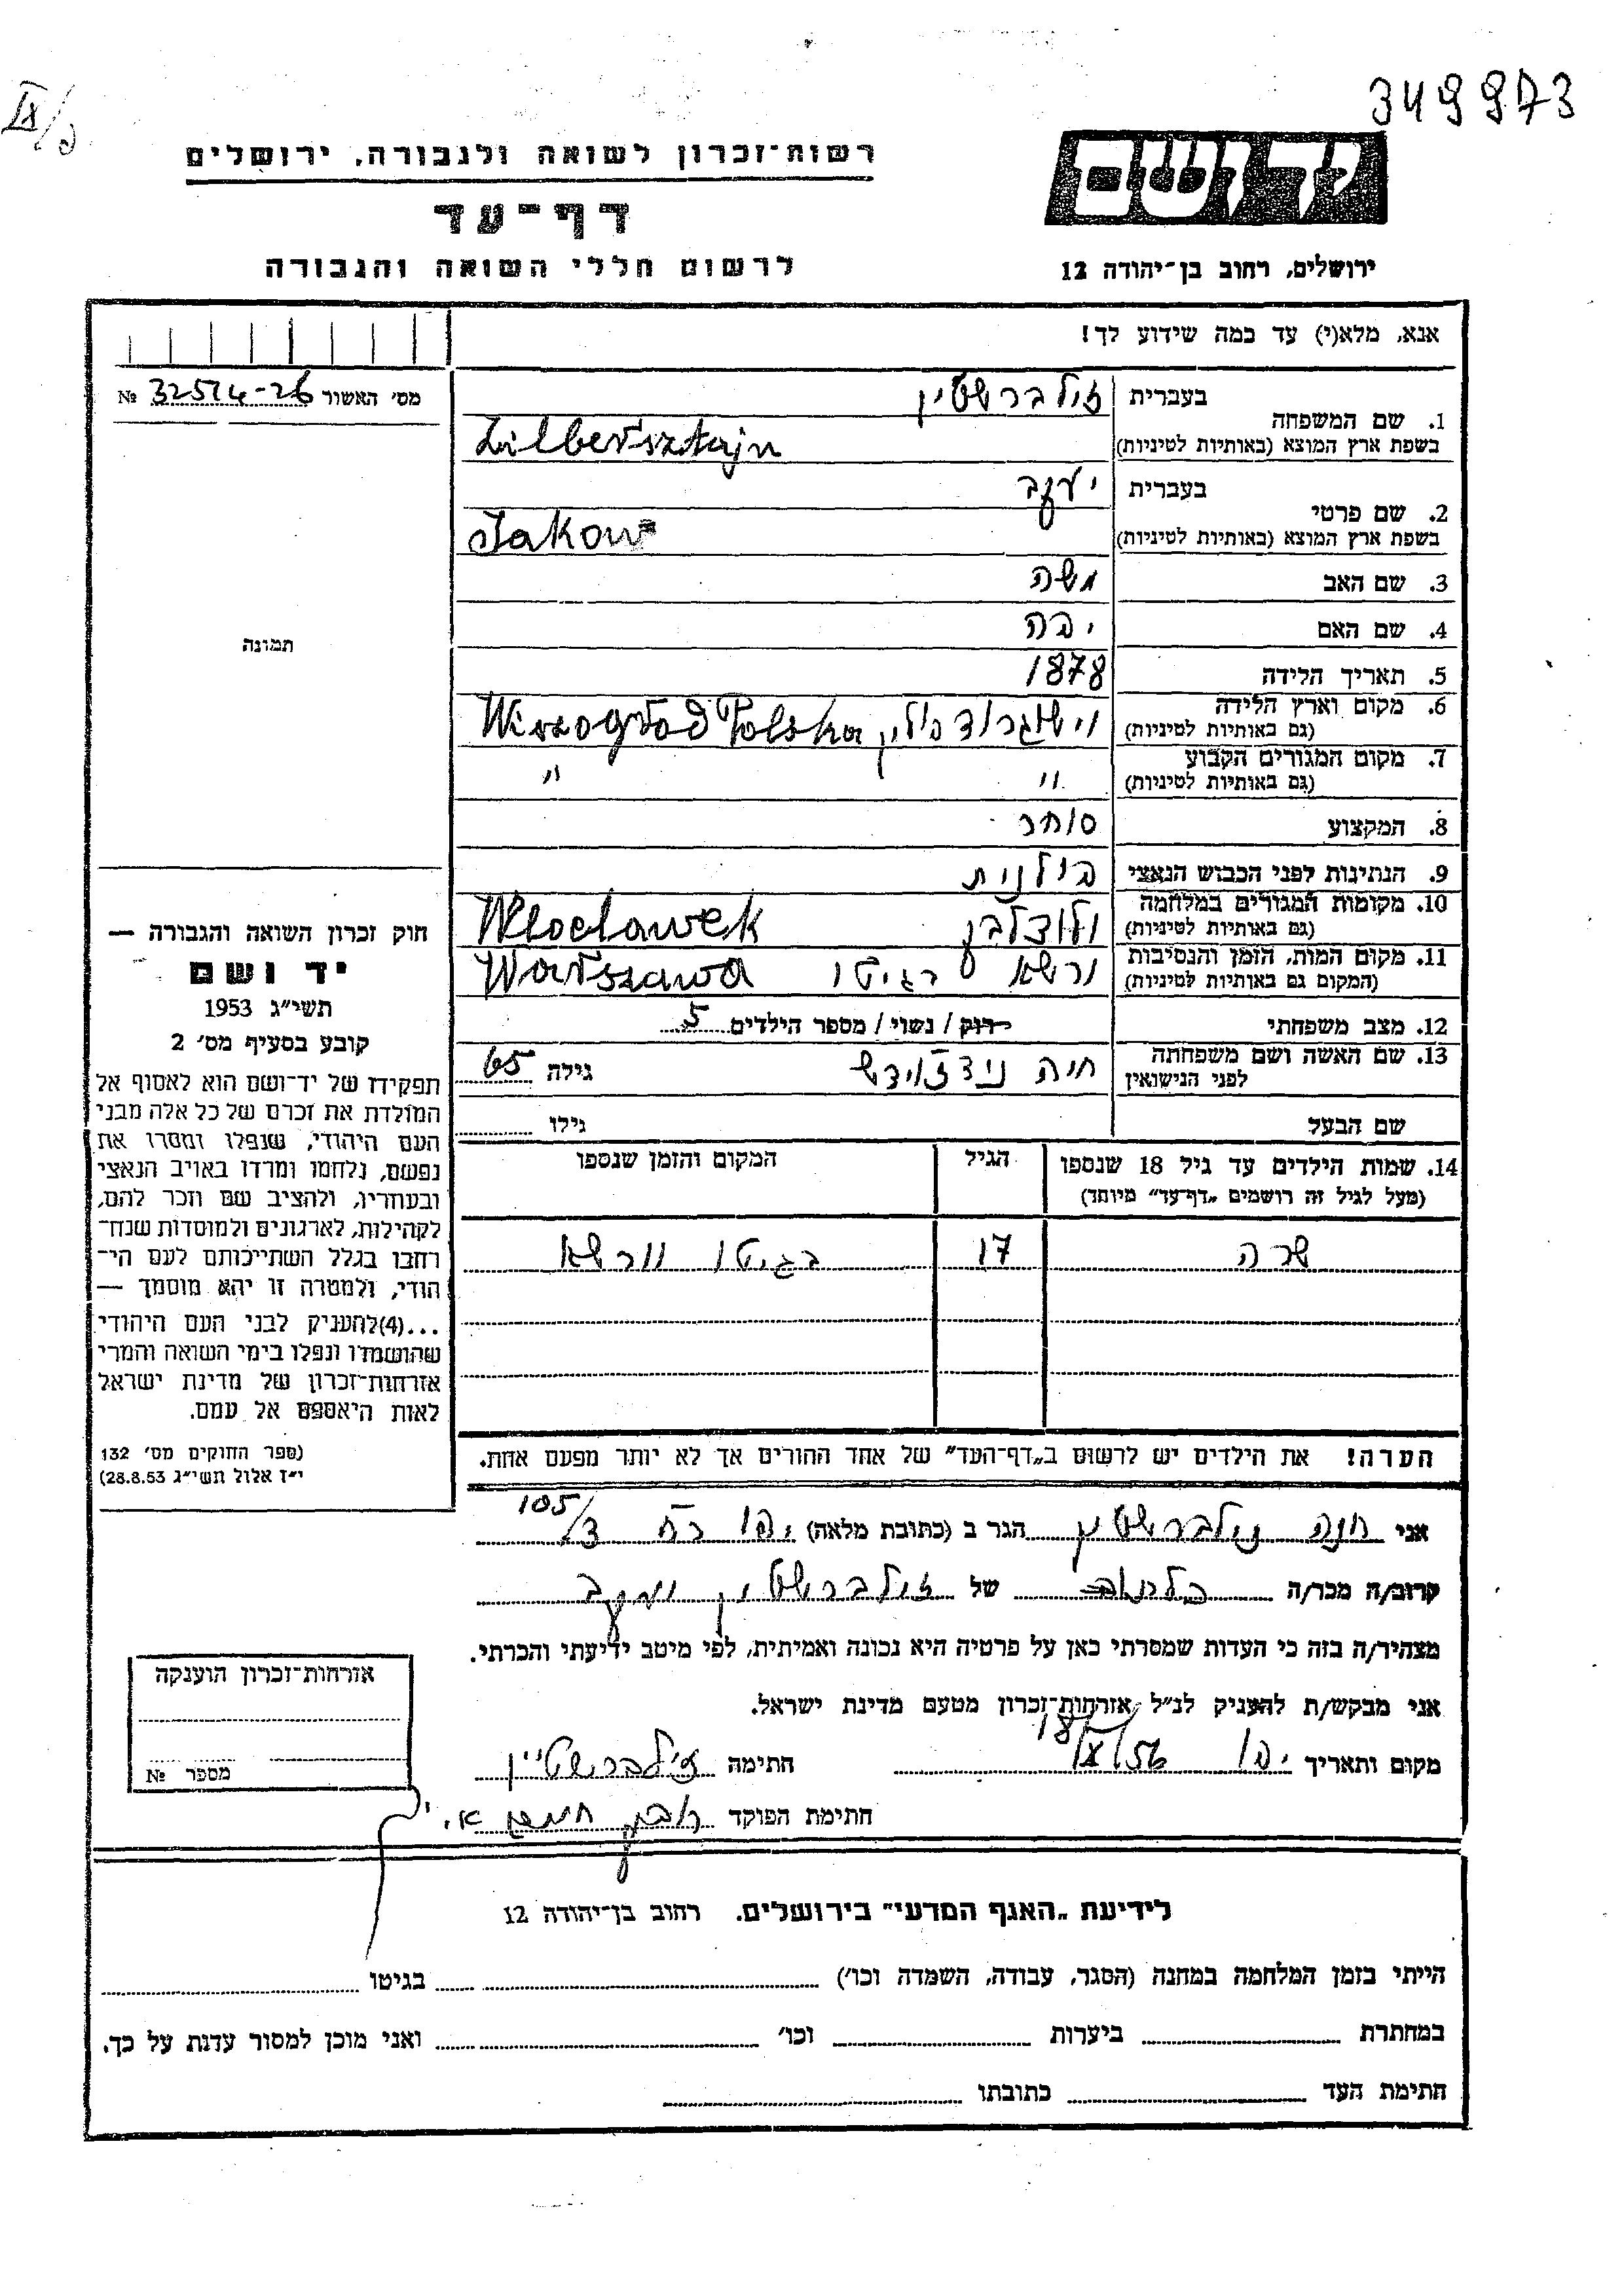 349973
IX/6
רשות־זכרון לשואה ולגבורה, ירושלים
דף־עד
לרשום חללי השואה והגבורה
ידושם
ירושלים, רחוב בן־יהודה 12
אנא, מלא(י) עד כמה שידוע לך!
מס׳ האשור № 32514-26
תמונה
1. שם המשפחה
בעברית זילברשטין
בשפת ארץ המוצא (באותיות לטיניות) Zilbersztajn
2. שם פרטי
בעברית יעקב
בשפת ארץ המוצא (באותיות לטיניות) Jakow
3. שם האב משה
4. שם האם
5. תאריך הלידה 1878
6. מקום וארץ הלידה
(גם באותיות לטיניות) וישוגרוד פולין Wiszogrod Polska
7. מקום המגורים הקבוע
(גם באותיות לטיניות) " "
8. המקצוע סוחר
9. הנתינות לפני הכבוש הנאצי פולנית
10. מקומות המגורים במלחמה
(גם באותיות לטיניות) ולוצלבק Włocławek
11. מקום המות, הזמן והנסיבות
(המקום גם באותיות לטיניות) ורשא בגיטו Warszawa
12. מצב משפחתי רוק / נשוי / מספר הילדים 5
13. שם האשה ושם משפחתה
לפני הנישואין חיה גילה 65
שם הבעל גילו
14. שמות הילדים עד גיל 18 שנספו
(מעל לגיל זה רושמים „דף־עד" מיוחד)
הגיל
המקום והזמן שנספו
שרה 17 בגיטו וורשא
הערה! את הילדים יש לרשום ב„דף־העד" של אחד ההורים אך לא יותר מפעם אחת.
חוק זכרון השואה והגבורה —
יד ושם
תשי״ג 1953
קובע בסעיף מס׳ 2
תפקידו של יד־ושם הוא לאסוף אל
המולדת את זכרם של כל אלה מבני
העם היהודי, שנפלו ומסרו את
נפשם, נלחמו ומרדו באויב הנאצי
ובעוזריו, ולהציב שם וזכר להם,
לקהילות, לארגונים ולמוסדות שנח־
רבו בגלל השתייכותם לעם הי־
הודי, ולמטרה זו יהא מוסמך —
...(4)להעניק לבני העם היהודי
שהושמדו ונפלו בימי השואה והמרי
אזרחות־זכרון של מדינת ישראל
לאות היאספם אל עמם.
(ספר החוקים מס׳ 132
י״ז אלול תשי״ג 28.8.53)
אני חנה זילברשטין הגר ב (כתובת מלאה) יפו 105/
קרוב/ה מכר/ה של זילברשטין יעקב
מצהיר/ה בזה כי העדות שמסרתי כאן על פרטיה היא נכונה ואמיתית, לפי מיטב ידיעתי והכרתי.
אני מבקש/ת להעניק לנ״ל אזרחות־זכרון מטעם מדינת ישראל.
מקום ותאריך יפו 18/X/56 חתימה זילברשטיין
חתימת הפוקד
אזרחות־זכרון הוענקה
מספר №
לידיעת „האגף המדעי" בירושלים. רחוב בן־יהודה 12
הייתי בזמן המלחמה במחנה (הסגר, עבודה, השמדה וכו׳) בגיטו
במחתרת ביערות וכו׳ ואני מוכן למסור עדות על כך.
חתימת העד כתובתו